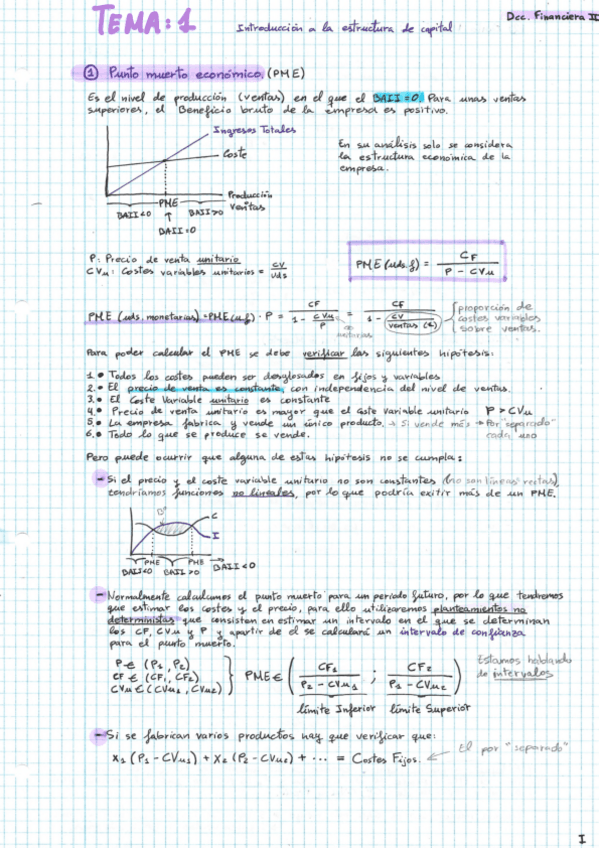 TEMA: 1
Introducción a la estructura de capital
Dcc. Financiera II
① Punto muerto económico. (PME)
Es el nivel de producción (ventas), en el que el BAII=0. Para unas ventas
superiores, el Beneficio bruto de la empresa es positivo.
Ingresos Totales
Coste
Producción
Ventas
PME
BAII<0
BAII>0
BAII=0
En su análisis solo se considera
la estructura económica de la
empresa.
P: Precio de venta unitario
CVu: Costes variables unitarios = CV / Uds
PME (uds. f) = CF / P - CVu
PME (uds. monetarias) = PME(u.f) · P = CF / 1 - CVu/P = CF / 1 - CV/ventas (€)
unitarias
proporción de
costes variables
sobre ventas.
Para poder calcular el PME se debe verificar las siguientes hipótesis:
1.• Todos los costes pueden ser desglosados en fijos y variables
2.• El precio de venta es constante, con independencia del nivel de ventas.
3.• El Coste Variable unitario es constante
4.• Precio de venta unitario es mayor que el Coste Variable unitario P > CVu
5.• La empresa fabrica y vende un único producto. → Si vende más → Por "separado"
cada uno
6.• Todo lo que se produce se vende.
Pero puede ocurrir que alguna de estas hipótesis no se cumpla:
- Si el precio y el coste variable unitario no son constantes (no son líneas rectas),
tendríamos funciones no lineales, por lo que podría exitir más de un PME.
Bº
C
I
PME PME
BAII<0 BAII>0 BAII<0
- Normalmente calculamos el punto muerto para un periodo futuro, por lo que tendremos
que estimar los costes y el precio, para ello utilizaremos planteamientos no
deterministas que consisten en estimar un intervalo en el que se determinan
los CF, CVu y P y apartir de el se calculará un intervalo de confianza
para el punto muerto.
P ∈ (P1, P2)
CF ∈ (CF1, CF2)
CVu ∈ (CVu1, CVu2)
PME ∈ ( CF1 / P2 - CVu1 ; CF2 / P1 - CVu2 )
límite Inferior límite Superior
Estamos hablando
de intervalos
- Si se fabrican varios productos hay que verificar que:
X1 (P1 - CVu1) + X2 (P2 - CVu2) + ··· = Costes Fijos.
El por "separado"
I